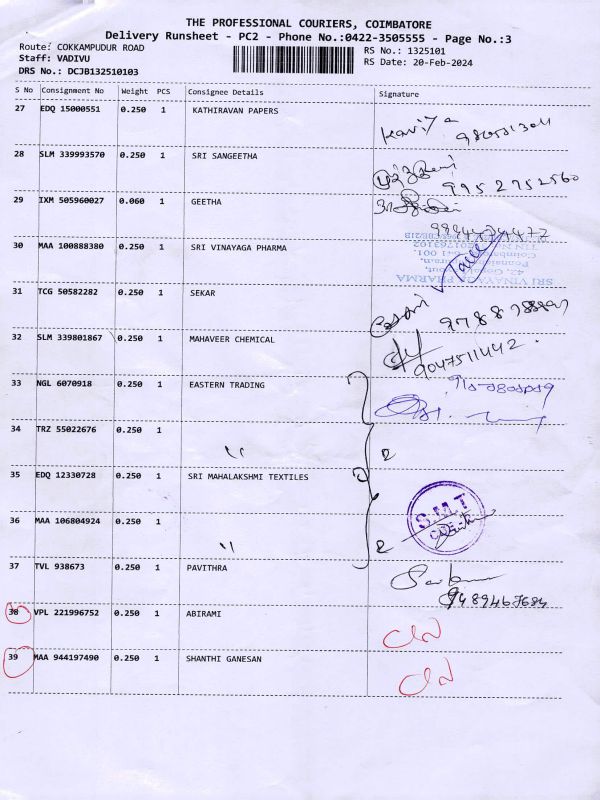 THE PROFESSIONAL COURIERS, COIMBATORE
Delivery Runsheet - PC2 - Phone No.:0422-3505555 - Page No.:3
Route: COKKAMPUDUR ROAD RS No.: 1325101
Staff: VADIVU RS Date: 20-Feb-2024
DRS No.: DCJB132510103
S No Consignment No Weight PCS Consignee Details Signature
27 EDQ 15000551 0.250 1 KATHIRAVAN PAPERS
Kaviya
28 SLM 339993570 0.250 1 SRI SANGEETHA
9952752560
29 IXM 505960027 0.060 1 GEETHA
30 MAA 100888380 0.250 1 SRI VINAYAGA PHARMA
SRI VINAYAGA PHARMA
31 TCG 50582282 0.250 1 SEKAR
32 SLM 339801867 0.250 1 MAHAVEER CHEMICAL
9047511442.
33 NGL 6070918 0.250 1 EASTERN TRADING
34 TRZ 55022676 0.250 1 "
2
35 EDQ 12330728 0.250 1 SRI MAHALAKSHMI TEXTILES
S.M.T
36 MAA 106804924 0.250 1 "
2
37 TVL 938673 0.250 1 PAVITHRA
9489467684
38 VPL 221996752 0.250 1 ABIRAMI
39 MAA 944197490 0.250 1 SHANTHI GANESAN